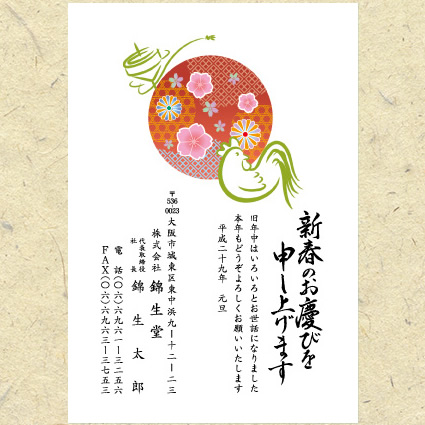 新春のお慶びを
申し上げます
旧年中はいろいろとお世話になりました
本年もどうぞよろしくお願いいたします
平成二十九年　元旦
〒536-0023
大阪市城東区東中浜九ー十二ー二三
株式会社　錦生堂
代表取締役
社長　錦生太郎
電話(〇六)六九六一ー三二五六
FAX(〇六)六九六三ー三七五三